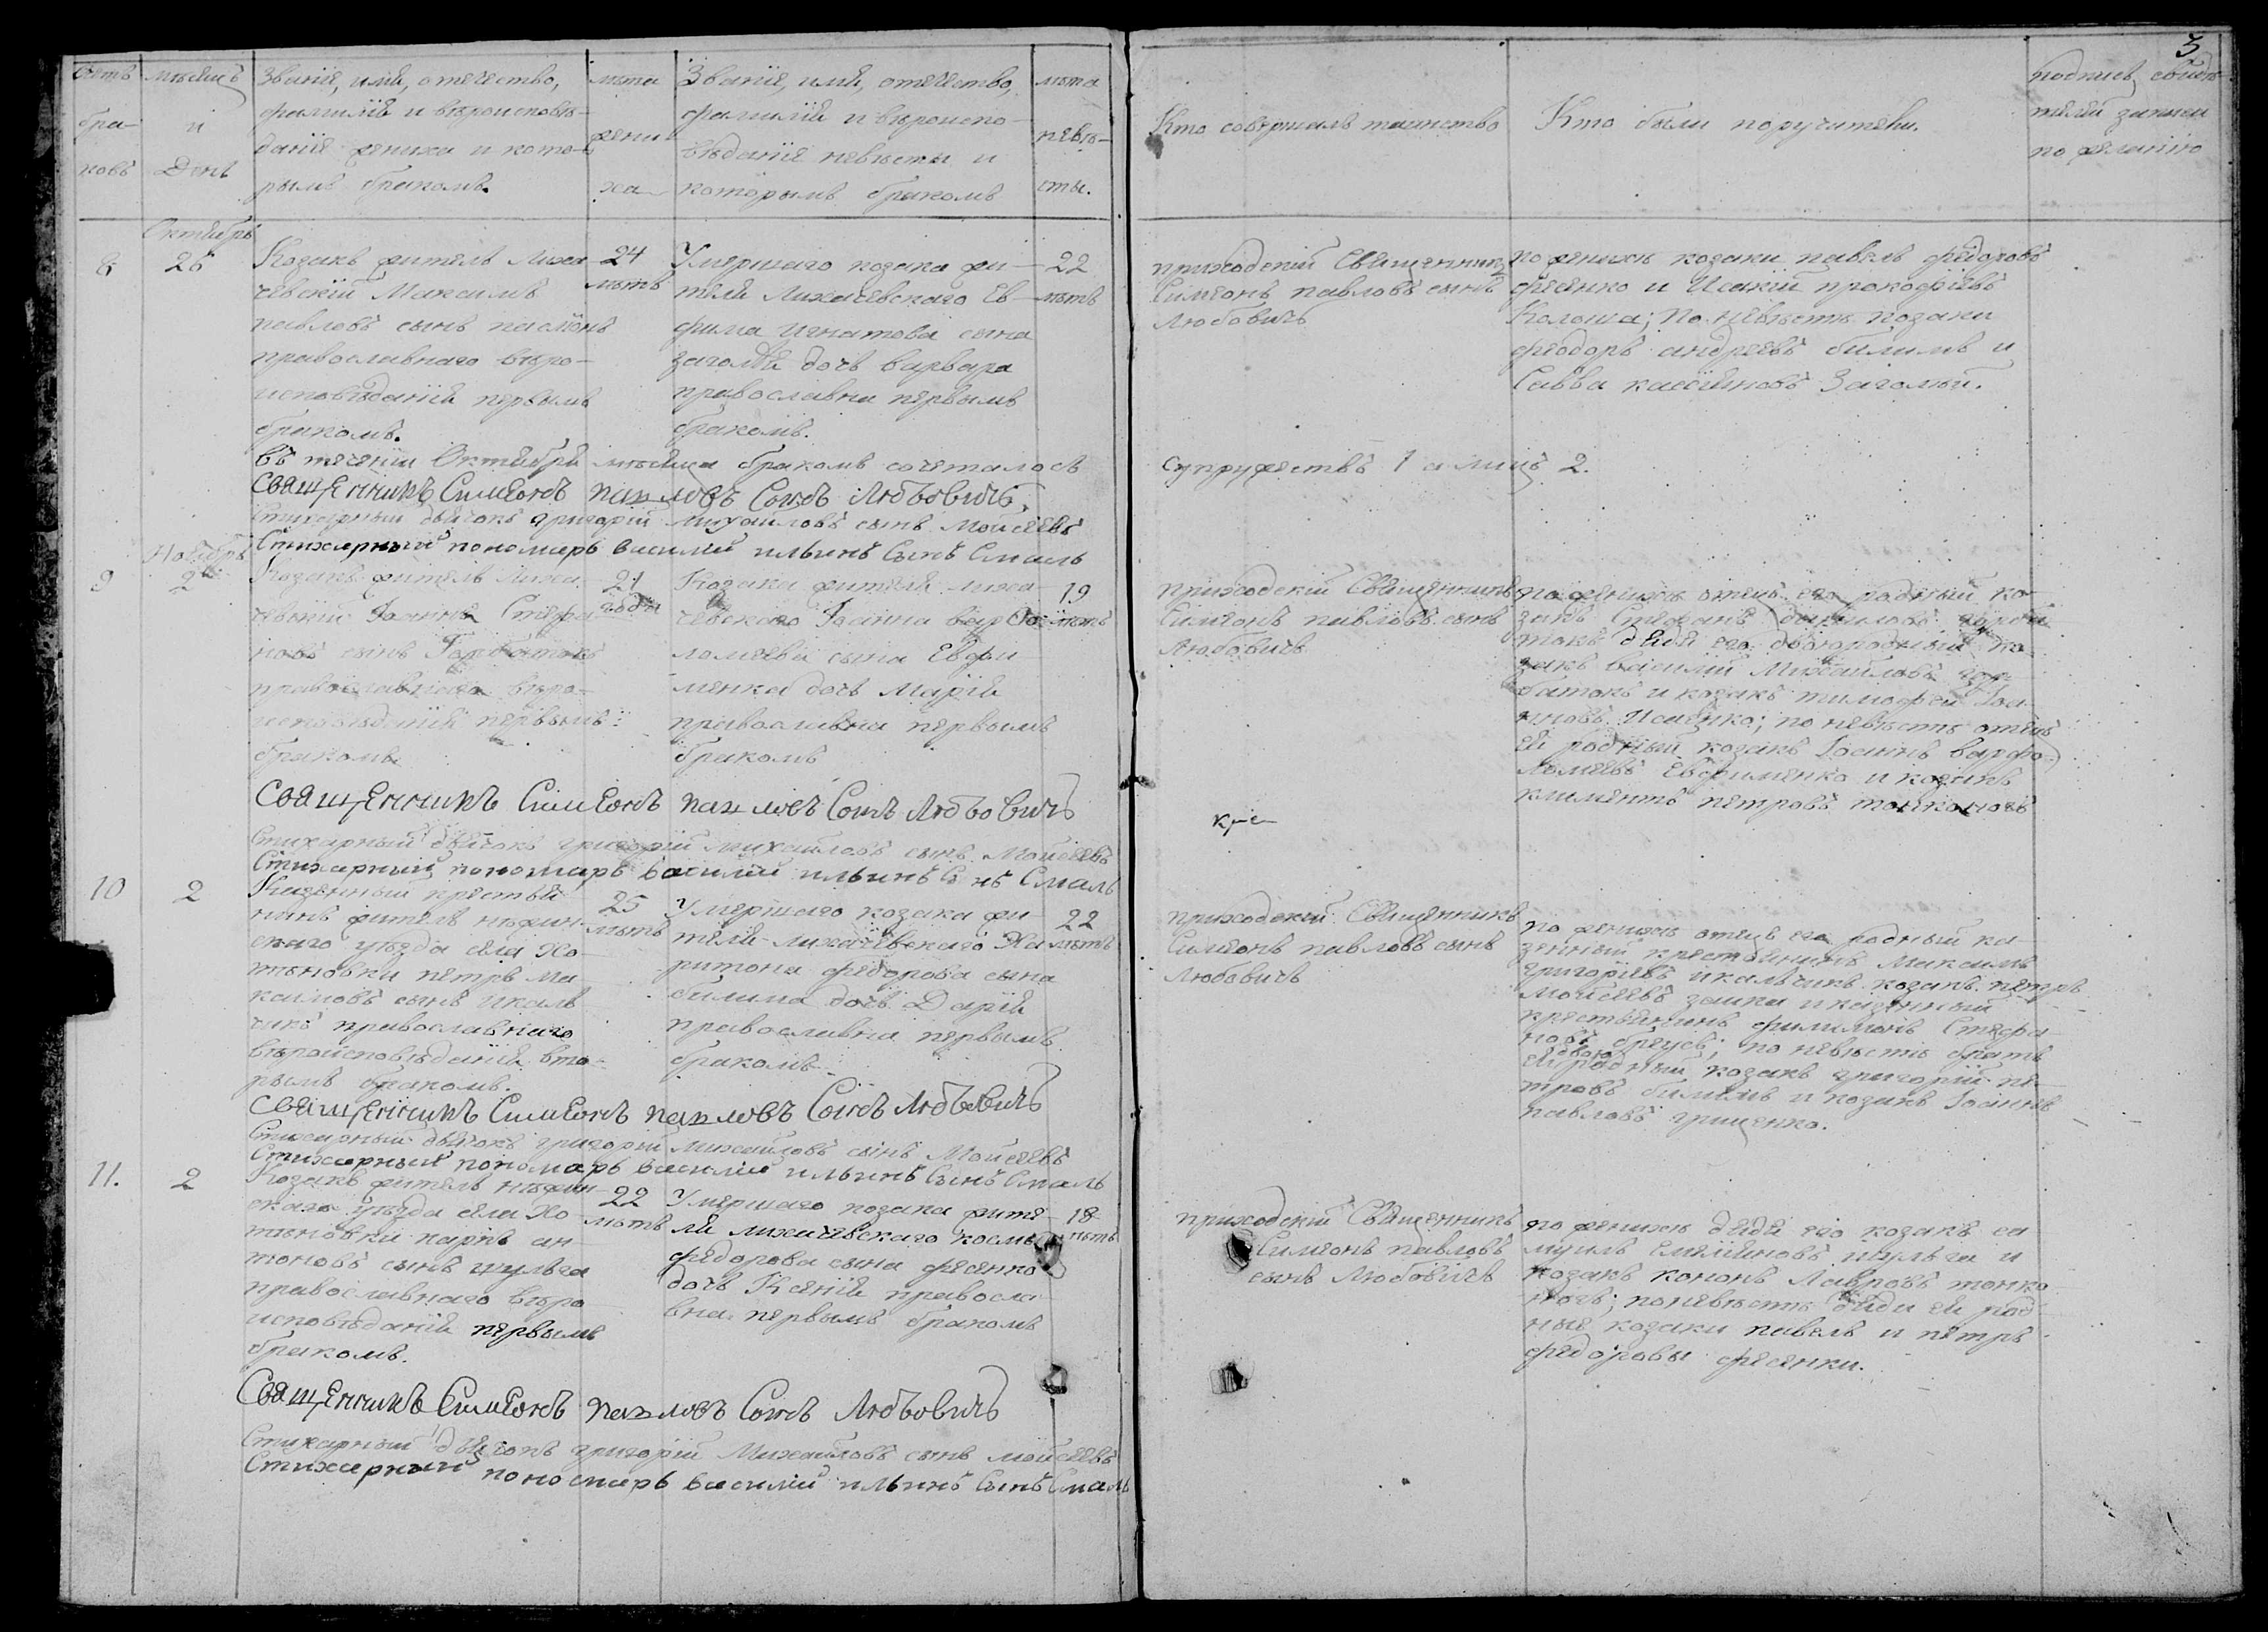 3
Счетъ браковъ
мѣсяцъ и День
Званіе, имя, отечество,
фамилія и вѣроисповѣ-
даніе жениха и кото-
рымъ бракомъ.
лѣта жени-ха
Званіе, имя, отечество,
фамилія и вѣроиспо-
вѣданіе невѣсты и
которымъ бракомъ
лѣта невѣ-сты.
Кто совершалъ таинство
Кто были поручители.
подпись свидѣ-
телей записи
по желанію
Октябрь
8
26
Козакъ житель Лиха-
чевскій Максимъ
павловъ сынъ
православнаго вѣро-
исповѣданія первымъ
бракомъ.
24
лѣтъ
Умершаго козака жи-
теля Лихачевскаго Ев-
фима Игнатова сына
заголѣя дочь варвара
православна первымъ
бракомъ.
22
лѣтъ
приходскій Священникъ
Симеонъ павловъ сынъ
Любовичъ
по женихѣ козаки павелъ фёдоровъ
фесенко и Исакій прокофіевъ
Калоша; по невѣстѣ козаки
феодоръ андреевъ билимъ и
Савва касіяновъ Заголѣй.
въ теченіи Октября мѣсяца бракомъ сочеталось
супружествъ 1 а лицъ 2.
Священникъ Симеонъ павловъ Сынъ Любовичъ
Стихарный дьячокъ григорій михайловъ сынъ Мойсеевъ
Стихарный пономарь василій ильинъ Сынъ Смаль
Ноябрь
9
2
Козакъ житель Лиха-
чевскій Іоаннъ Стефа-
новъ сынъ Горбатокъ
православнаго вѣро-
исповѣданія первымъ
бракомъ
21
годъ
Козака жителя лиха-
чевскаго Іоанна варфо-
ломеева сына Евфи-
менка дочь Марія
православна первымъ
бракомъ
19
лѣтъ
приходскій Священникъ
Симеонъ павловъ сынъ
Любовичъ
по женихѣ отецъ его родный ко-
закъ Стефанъ даниловъ горба-
токъ дядя его двоюродный ко-
закъ василій Михайловъ гор-
батокъ и козакъ тимофей Іоан-
новъ Исаенко; по невѣстѣ отецъ
ея родный козакъ Іоаннъ варфо-
ломеевъ Евфименко и козакъ
климентъ петровъ тонконогъ
Священникъ Симеонъ павловъ Сынъ Любовичъ
Стихарный дьячокъ григорій михайловъ сынъ Мойсеевъ
Стихарный пономарь василій ильинъ Сынъ Смаль
10
2
Казенный крестья-
нинъ житель нѣжин-
скаго уѣзда села Хо-
тѣновки петръ Ма-
ксимовъ сынъ Икаль-
чикъ православнаго
вѣроисповѣданія вто-
рымъ бракомъ.
25
лѣтъ
Умершаго козака жи-
теля лихачевскаго Ха-
ритона федорова сына
билима дочь Дарія
православна первымъ
бракомъ
22
лѣтъ
приходскій Священникъ
Симеонъ павловъ сынъ
Любовичъ
по женихѣ отецъ его родный ка-
зенный крестьянинъ Максимъ
григоріевъ икальчикъ козакъ петръ
мойсеевъ заика и казенный
крестьянинъ филимонъ Стефа-
новъ бреусъ; по невѣстѣ братъ
ея двоюродный козакъ григорій пе-
тровъ билимъ и козакъ Іоаннъ
павловъ грищенко.
Священникъ Симеонъ павловъ Сынъ Любовичъ
Стихарный дьячокъ григорій михайловъ сынъ Мойсеевъ
Стихарный пономарь василій ильинъ Сынъ Смаль
11.
2
Козакъ житель нѣжин-
скаго уѣзда села Хо-
тѣновки карпъ ан-
тоновъ сынъ шульга
православнаго вѣро-
исповѣданія первымъ
бракомъ.
22
лѣтъ
Умершаго козака жите-
ля лихачевскаго космы
федорова сына фесенко
дочь Ксенія правосла-
вна первымъ бракомъ
18
лѣтъ
приходскій Священникъ
Симеонъ павловъ
сынъ Любовичъ
по женихѣ дядя его козакъ са-
муилъ шульга и
козакъ кононъ Лавровъ тонко-
ногъ; по невѣстѣ дяди ея род-
ные козаки павелъ и петръ
федоровы фесенки.
Священникъ Симеонъ павловъ Сынъ Любовичъ
Стихарный дьячокъ григорій Михайловъ сынъ мойсеевъ
Стихарный пономарь василій ильинъ Сынъ Смаль